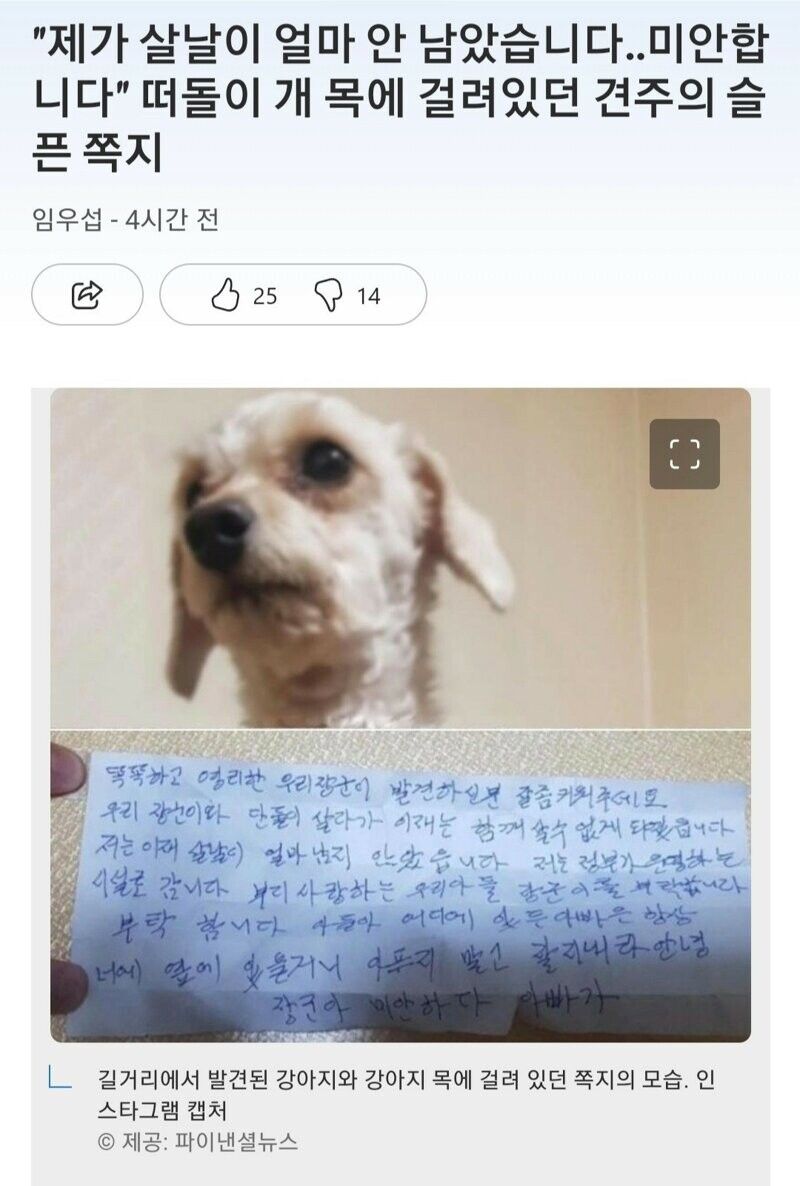 "제가 살날이 얼마 안 남았습니다..미안합
니다" 떠돌이 개 목에 걸려있던 견주의 슬
픈 쪽지
임우섭 - 4시간 전
25
14
똑똑하고 영리한 우리장군이 발견하실분 잘좀키워주세요
우리 장군이와 단둘이 살다가 이재는 함께 살수 없게 되었습니다
저는 이재 살날이 얼마 남지 안았습니다 저는 정부가 운영하는
시설로 갑니다 부디 사랑하는 우리아들 장군이를 부탁합니다
부탁 합니다 아들아 어디에 있든 아빠은 항상
너에 옆에 있을거니 아푸지 말고 잘지내라 안녕
장군아 미안하다 아빠가
길거리에서 발견된 강아지와 강아지 목에 걸려 있던 쪽지의 모습. 인
스타그램 캡처
© 제공: 파이낸셜뉴스